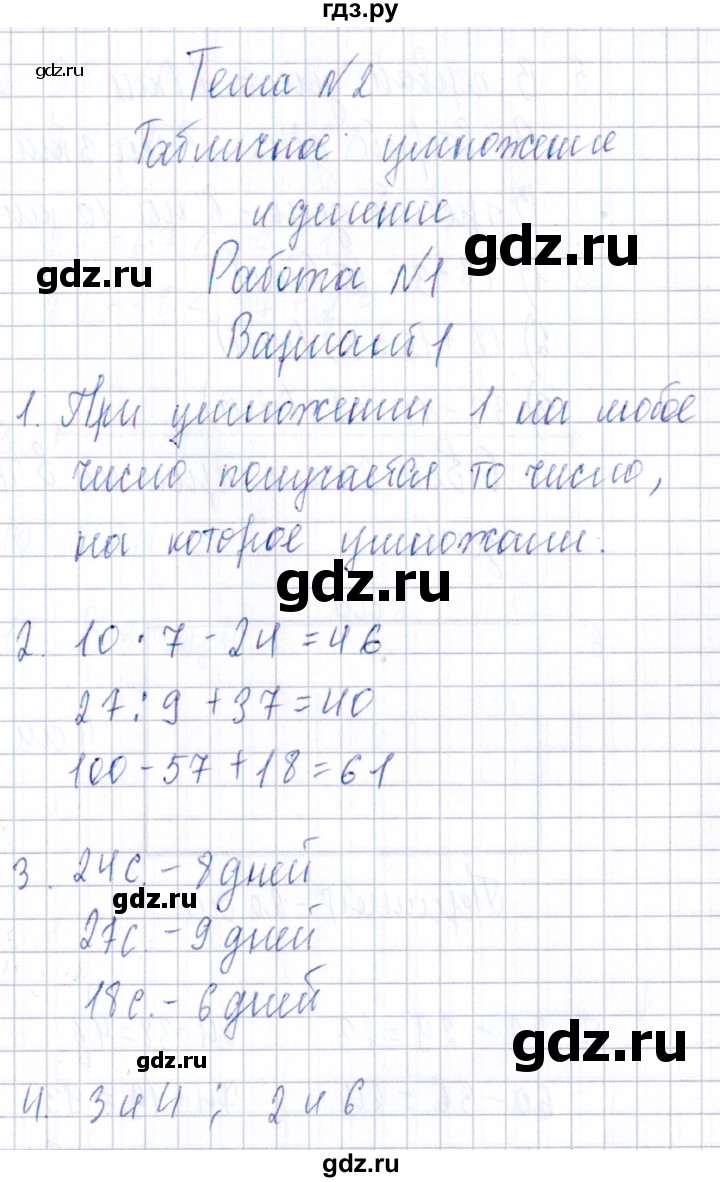 гдз.ру
gdz.ru
Тема №2
Табличное умножение
и деление
gdz.ru
gdz.ru
Работа №1
Вариант 1
1. При умножении 1 на любое
число получается то число,
на которое умножали.
gdz.ru
2. 10 · 7 - 24 = 46
27 : 9 + 37 = 40
100 - 57 + 18 = 61
3. 24с. - 8 дней
gdz.ru
27с. - 9 дней
18с. - 6 дней
gdz.ru
gdz.ru
4. 3 и 4 ; 2 и 6
gdz.ru